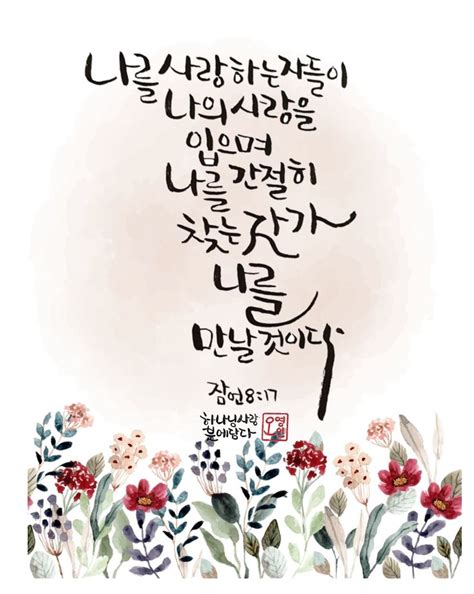 나를 사랑하는 자들이
나의 사랑을
입으며
나를 간절히
찾는 자가
나를
만날 것이다
잠언8:17
하나님사랑
붓에담다
영원